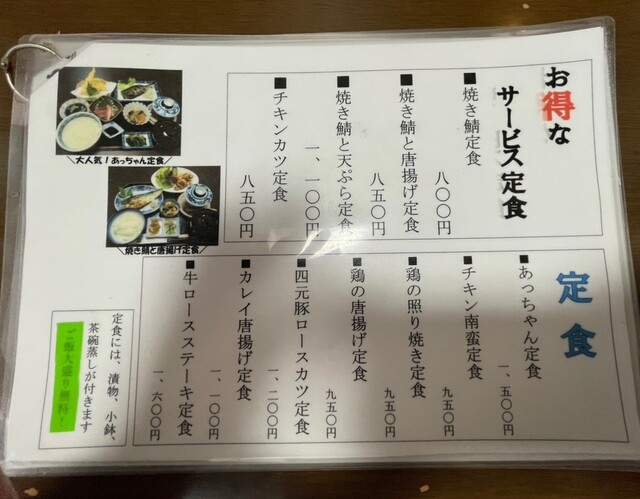 お得な
サービス定食
■焼き鯖定食
八〇〇円
■焼き鯖と唐揚げ定食
八五〇円
■焼き鯖と天ぷら定食
一、一〇〇円
■チキンカツ定食
八五〇円
大人気!あっちゃん定食
焼き鯖と唐揚げ定食
定食
■あっちゃん定食
一、五〇〇円
■チキン南蛮定食
九五〇円
■鶏の照り焼き定食
九五〇円
■鶏の唐揚げ定食
九五〇円
■四元豚ロースカツ定食
一、二〇〇円
■カレイ唐揚げ定食
一、一〇〇円
■牛ロースステーキ定食
一、六〇〇円
定食には、漬物、小鉢、
茶碗蒸しが付きます
ご飯大盛り無料!